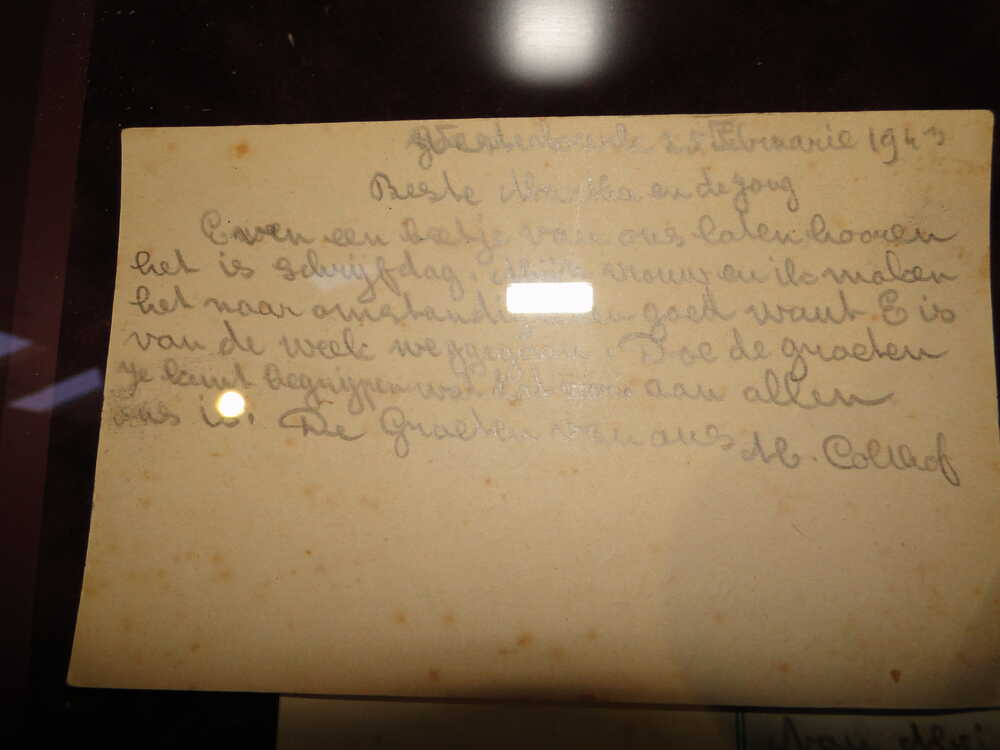 Westerbork 25 Februarie 1943
Beste en de Jong
Even een beetje van ons laten hooren
het is schrijfdag. Mijn vrouw en ik maken
het naar goed want E is
van de week weggegaan. Doe de groeten
je kunt begrijpen wat dat voor aan allen
ons is. De Groeten van ons